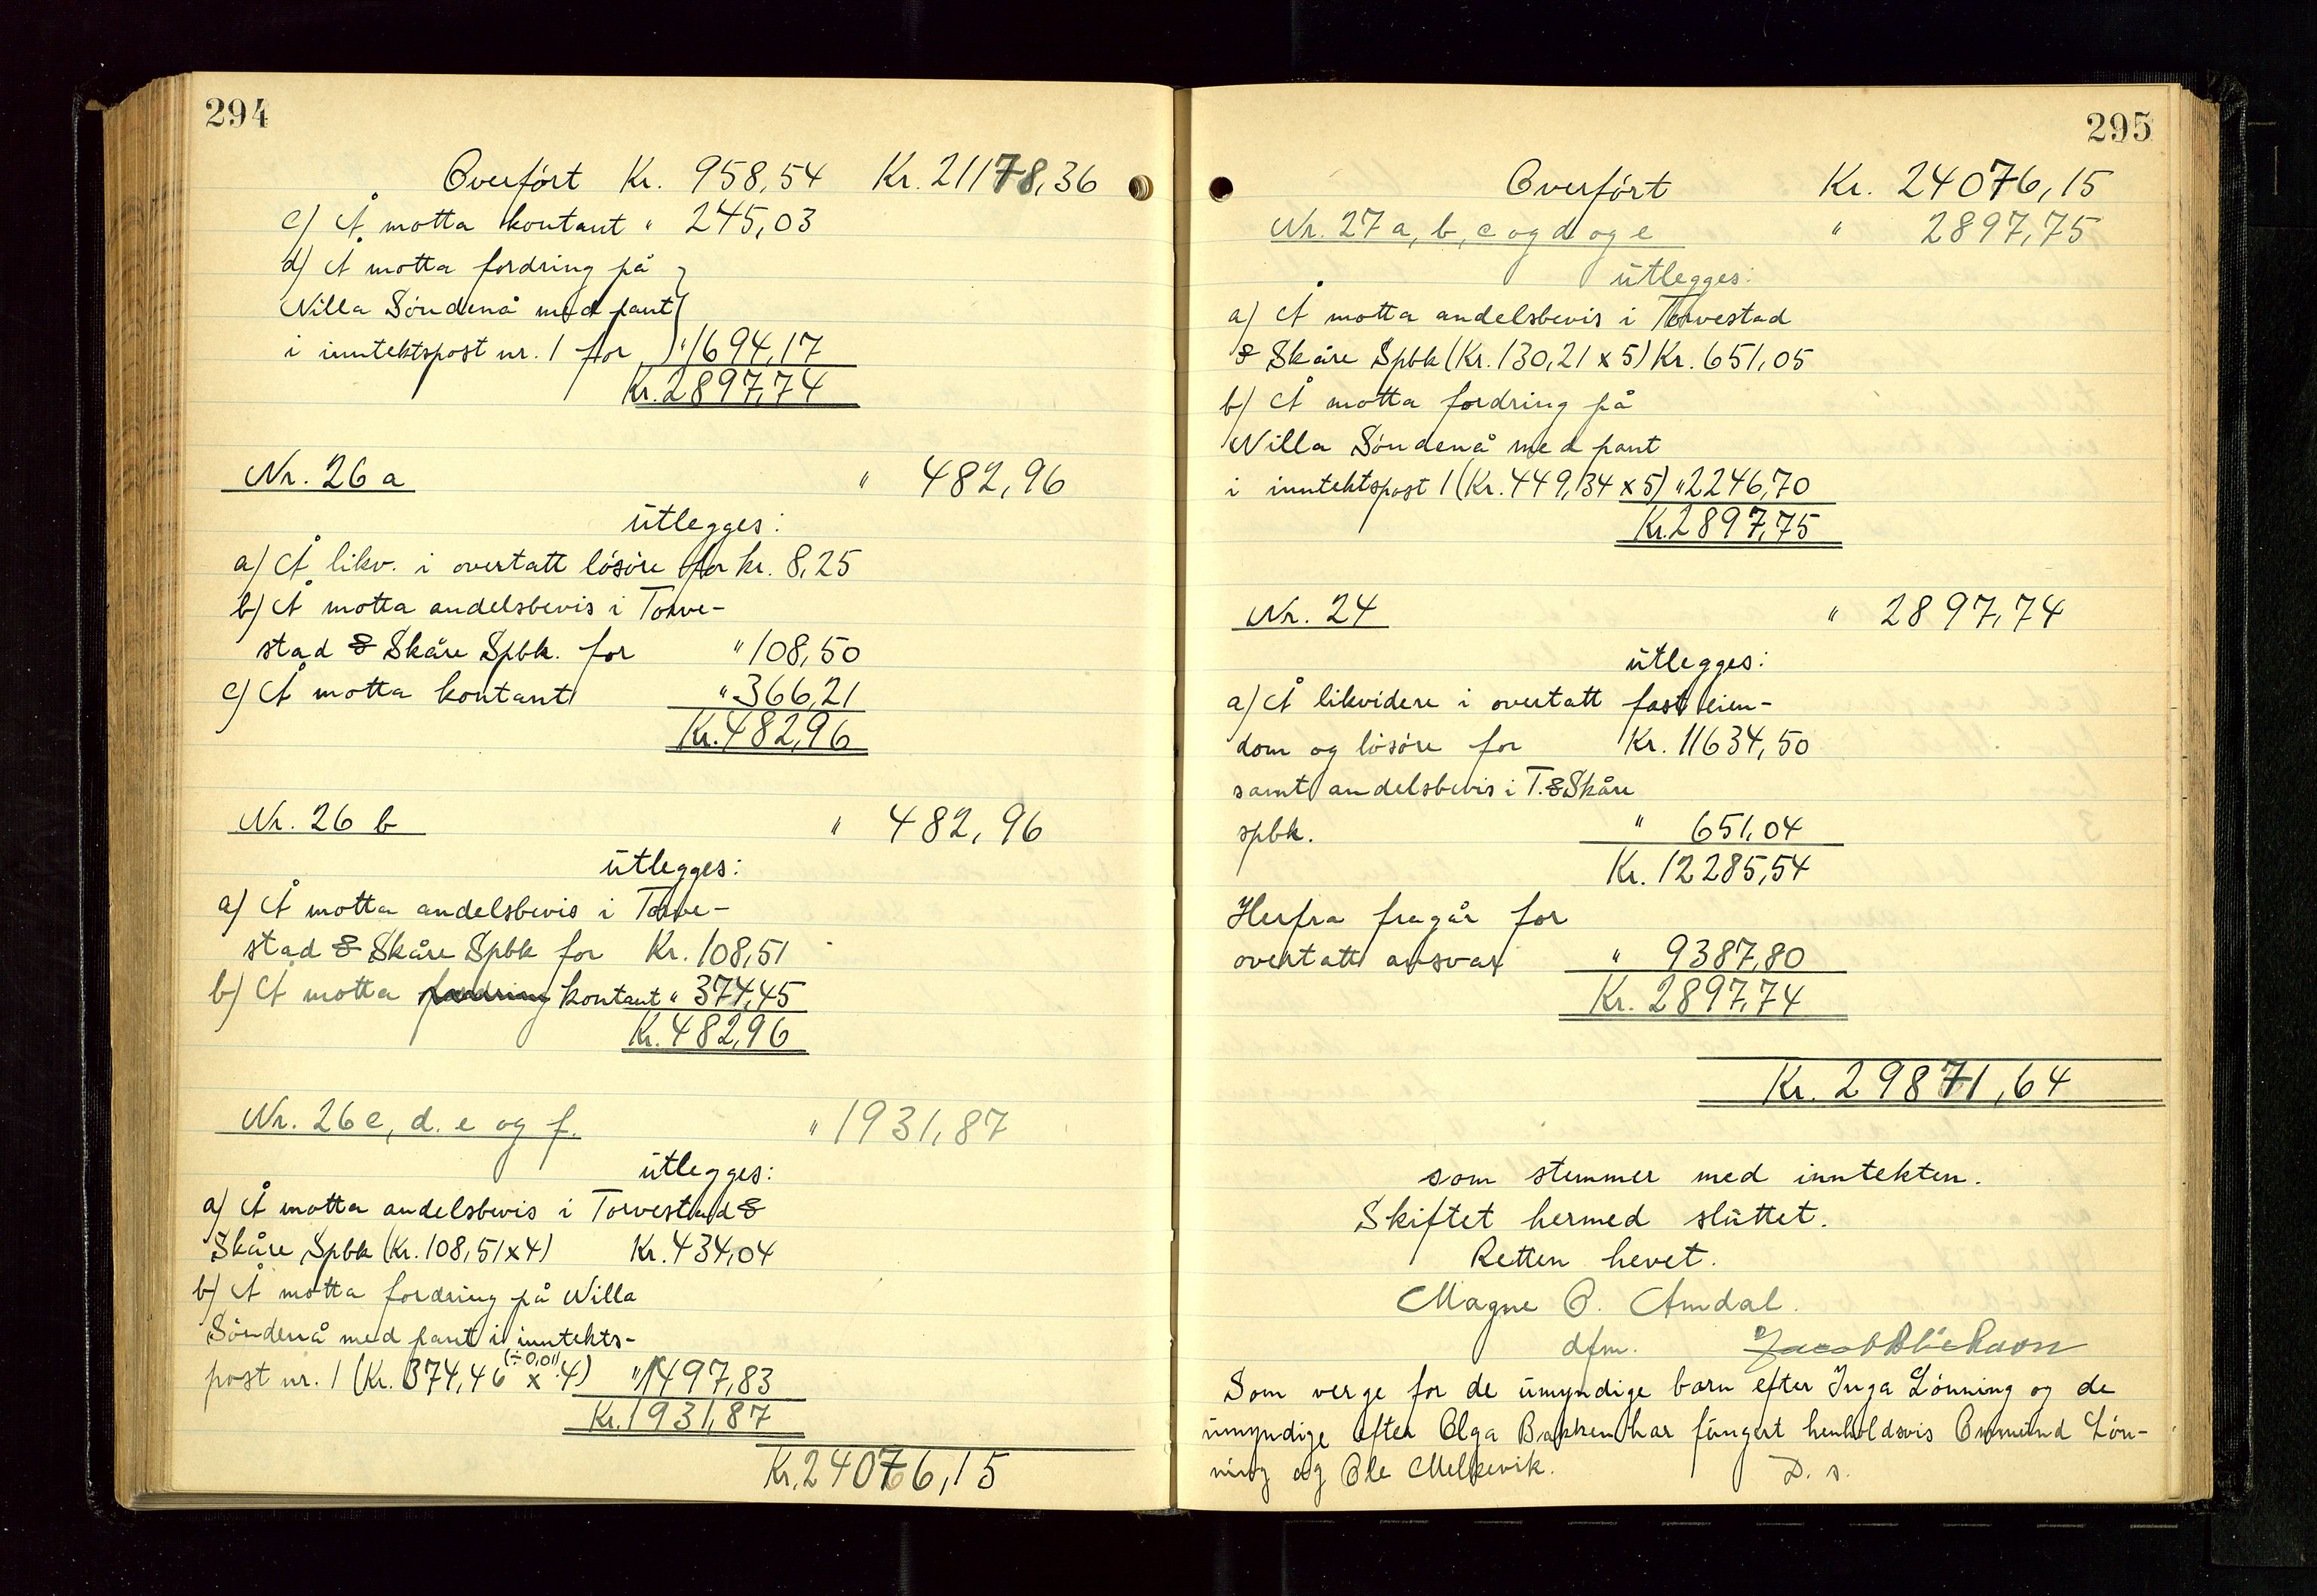 294
Overført Kr. 958,54 Kr. 21178,36
c) Å motta kontant " 245,03
d) Å motta fordring på
Villa Söndenå med pant
i inntektspost nr. 1 for " 1694,17
Kr. 2897,74
Nr. 26 a " 482,96
utlegges:
a) Å likv. i overtatt lösöre for kr. 8,25
b) Å motta andelsbevis i Torve-
stad & Skåre Spbk. for " 108,50
c) Å motta kontant " 366,21
Kr. 482,96
Nr. 26 b " 482,96
utlegges:
a) Å motta andelsbevis i Torve-
stad & Skåre Spbk for Kr. 108,51
b) Å motta fordring kontant " 374,45
Kr. 482,96
Nr. 26 c, d. e og f. " 1931,87
utlegges:
a) Å motta andelsbevis i Torvestad &
Skåre Spbk (Kr. 108,51 x 4) Kr. 434,04
b) Å motta fordring på Villa
Söndenå med pant i inntekts-
post nr. 1 (Kr. 374,46 (÷0,01) x 4) " 1497,83
Kr. 1931,87
Kr. 24076,15
295
Overført Kr. 24076,15
Nr. 27 a, b, c og d og e " 2897,75
utlegges:
a) Å motta andelsbevis i Torvestad
& Skåre Spbk (Kr. 130,21 x 5) Kr. 651,05
b) Å motta fordring på
Villa Söndenå med pant
i inntektspost 1 (Kr. 449,34 x 5) " 2246,70
Kr. 2897,75
Nr. 24 " 2897,74
utlegges:
a) Å likvidere i overtatt fast eien-
dom og lösöre for Kr. 11634,50
samt andelsbevis i T. & Skåre
spbk. " 651,04
Kr. 12285,54
Herfra fragår for
overtatt ansvar " 9387,80
Kr. 2897,74
Kr. 29871,64
som stemmer med inntekten.
Skiftet hermed sluttet.
Retten hevet.
Magne O. Amdal.
dfm.
Som verge for de umyndige barn efter Inga Lönning og de
umyndige efter Olga Bakken har fungert henholdsvis Ommund Lön-
ning og Ole Melkevik. D. s.